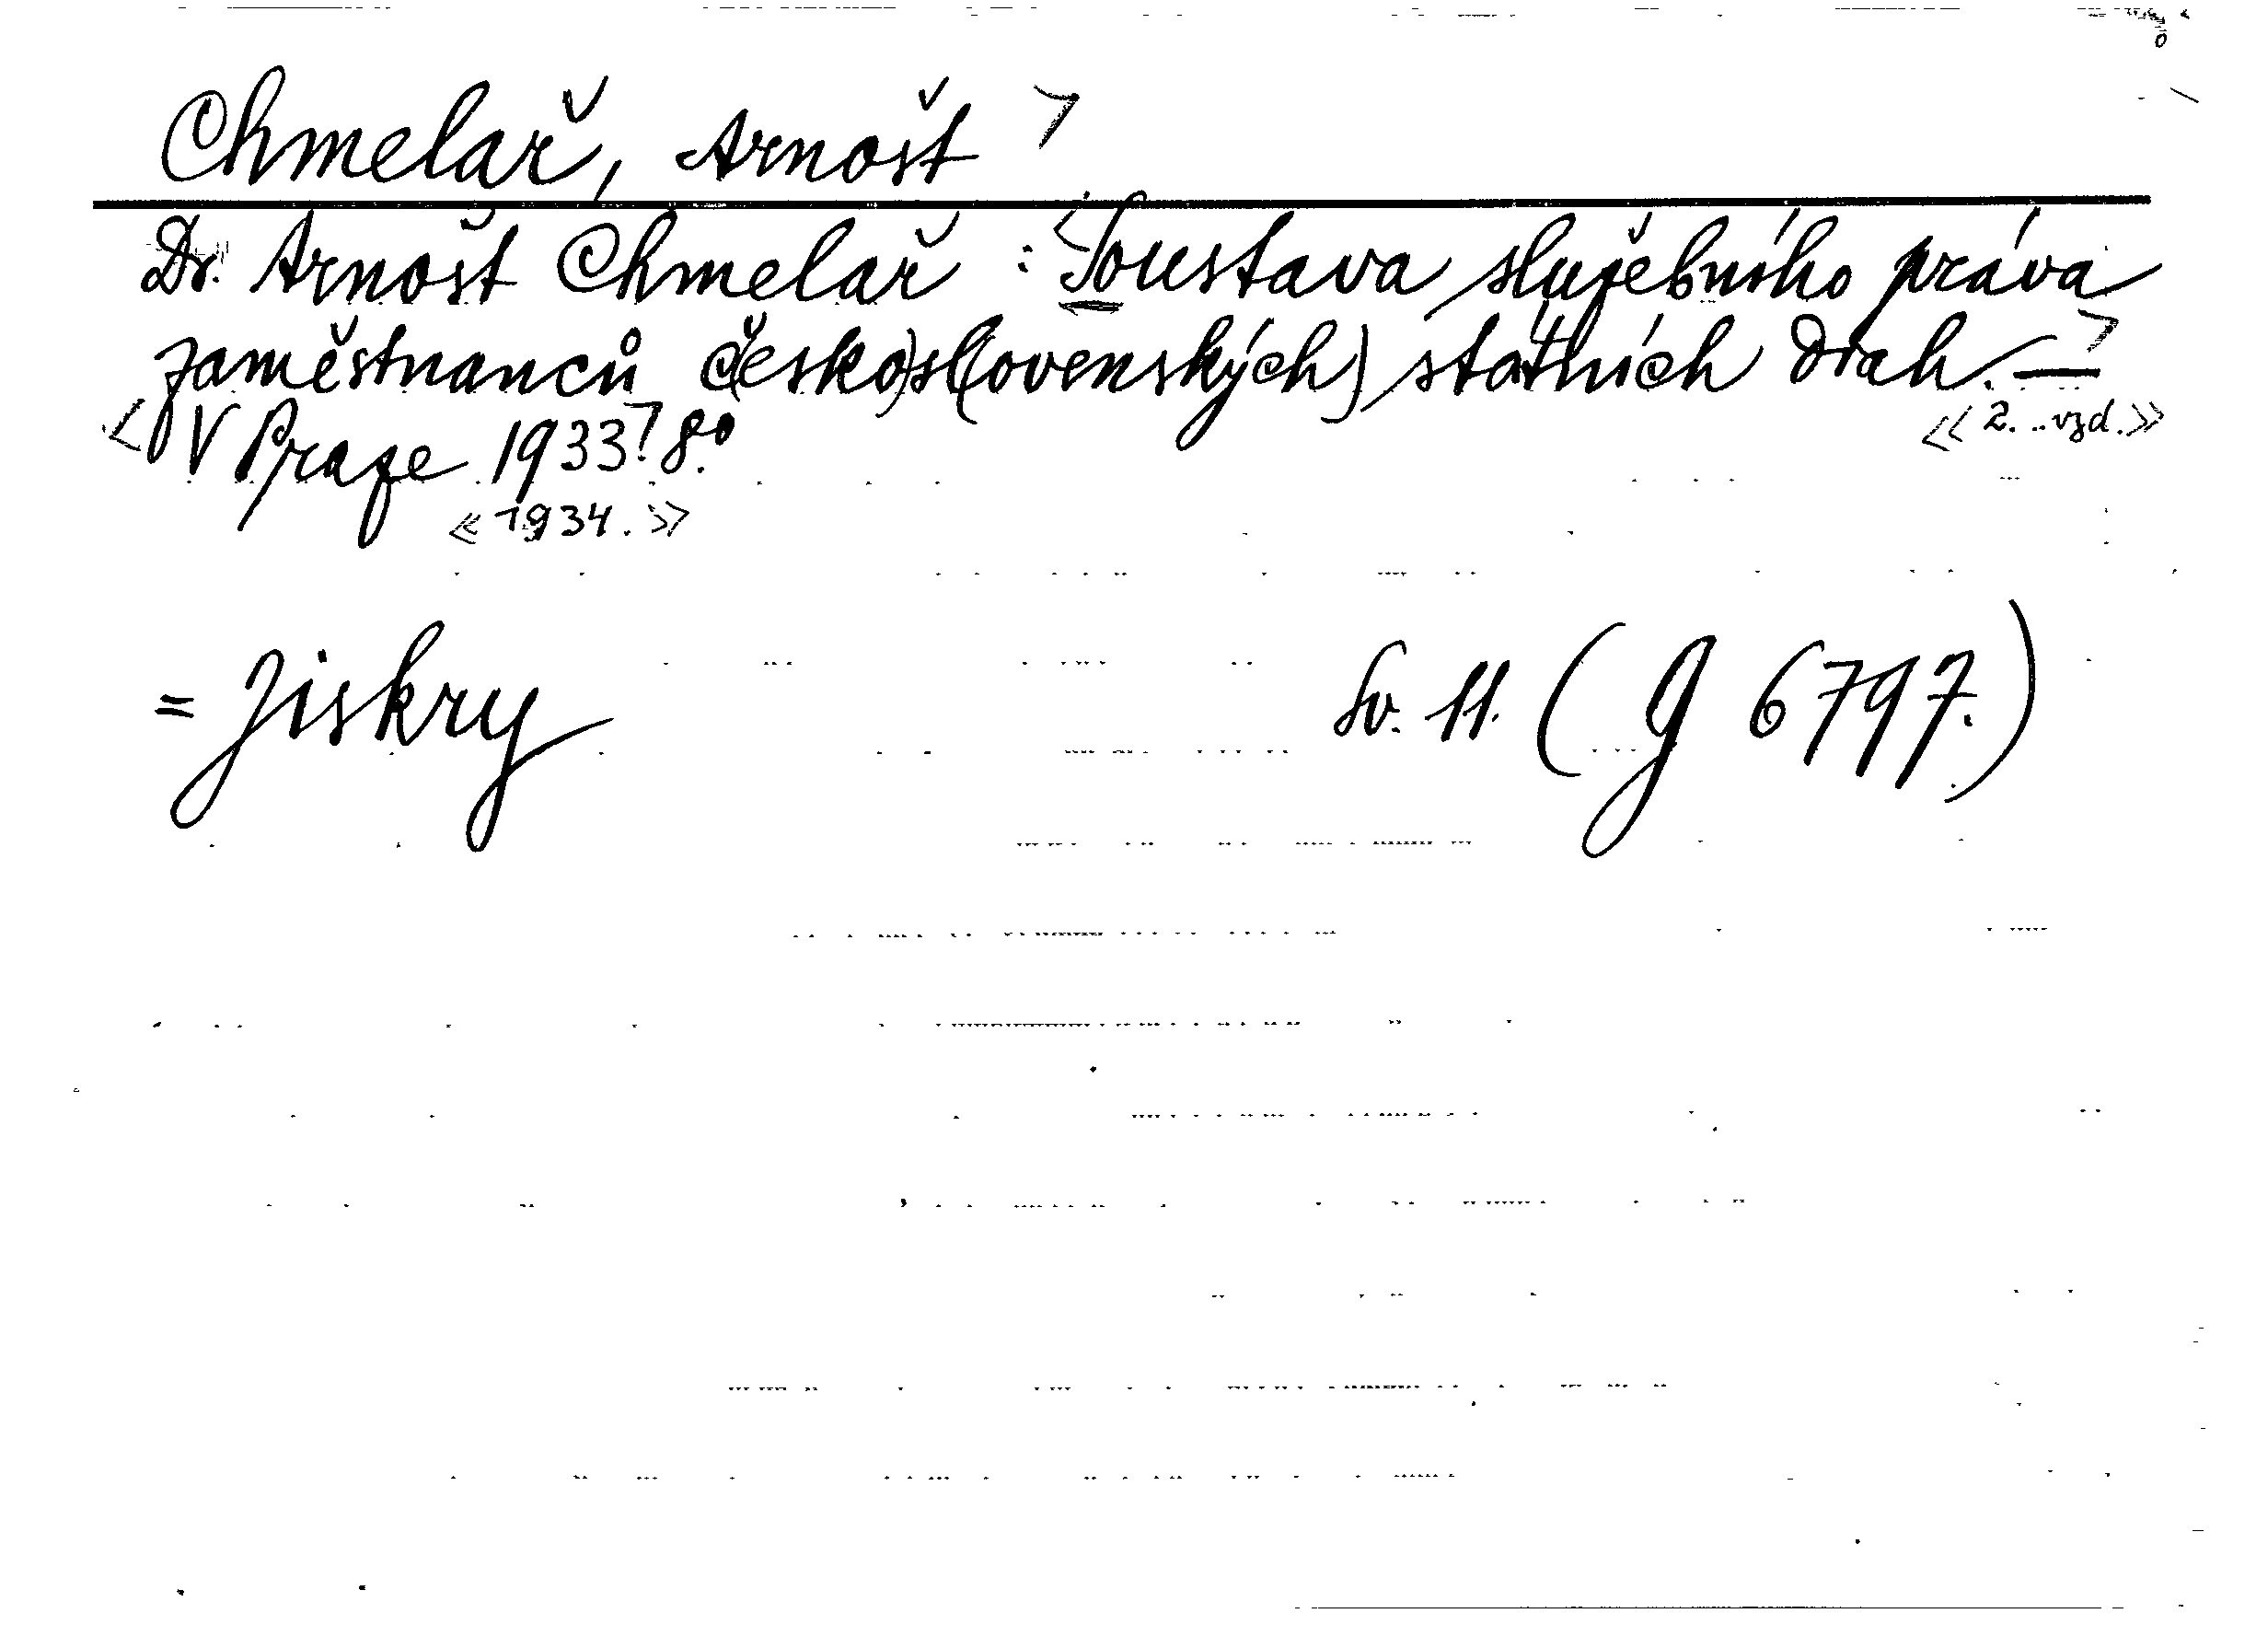 Chmelař, Arnošt >
Dr. Arnošt Chmelař : <Soustava služebního práva
zaměstnanců č(esko)sl(ovenských) státních drah. — >
<< 2. vzd. >>
< V Praze 1933> 8°
<< 1934. >>
= Jiskry Sv. 11. (G 6797.)